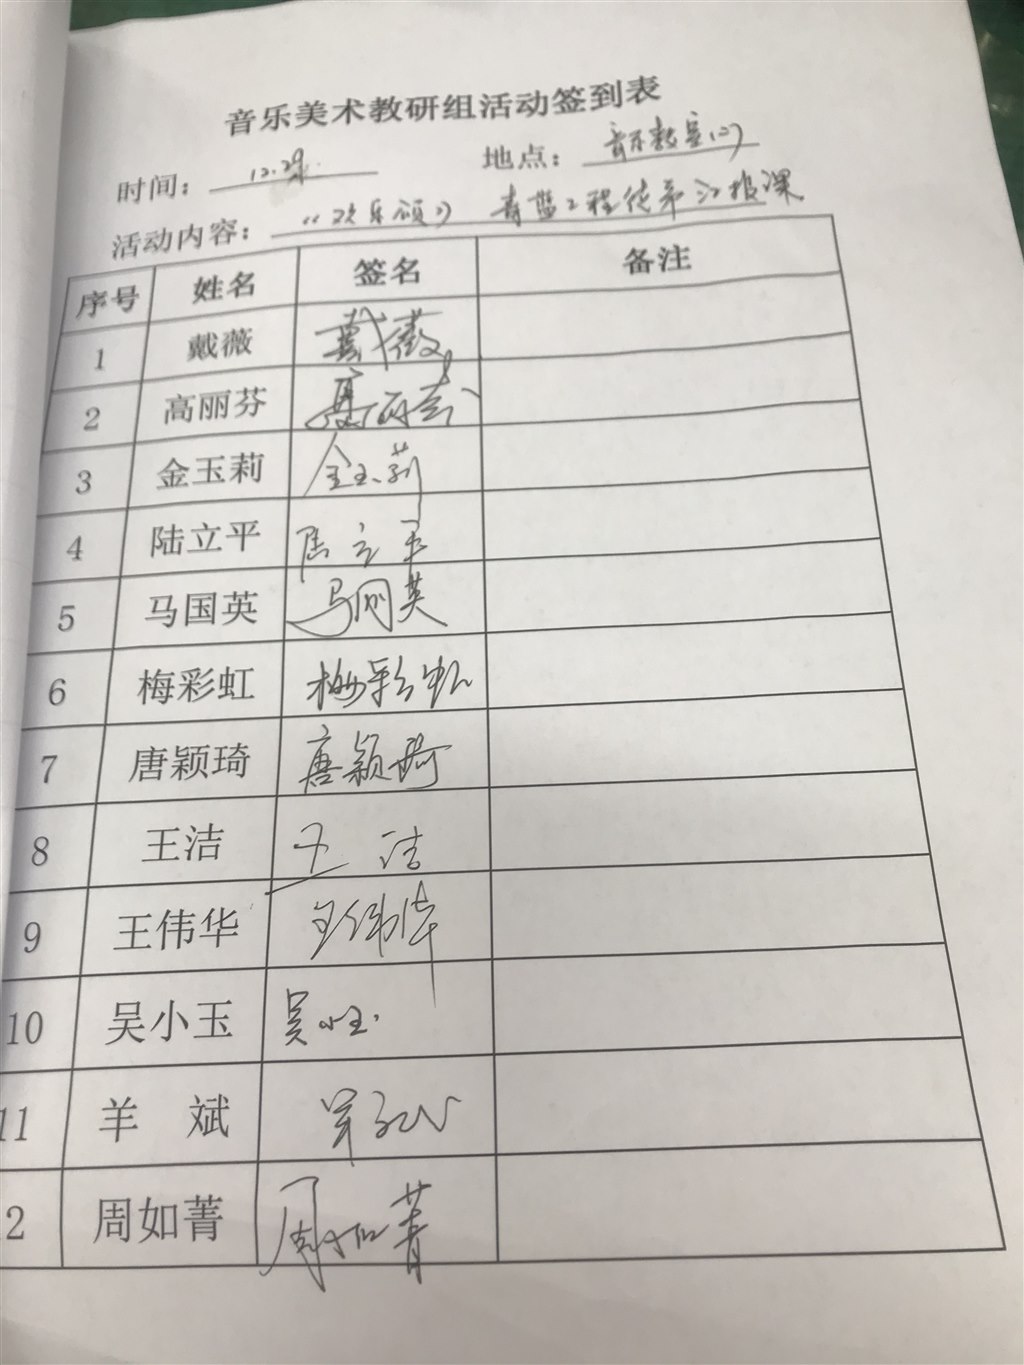 音乐美术教研组活动签到表
时间：12.29 地点：音乐教室(二)
活动内容：《欢乐颂》 青蓝工程徒弟汇报课
序号 姓名 签名 备注
1 戴薇 戴薇
2 高丽芬 高丽芬
3 金玉莉 金玉莉
4 陆立平 陆立平
5 马国英 马国英
6 梅彩虹 梅彩虹
7 唐颖琦 唐颖琦
8 王洁 王洁
9 王伟华 王伟华
10 吴小玉 吴小玉
11 羊 斌
2 周如菁 周如菁